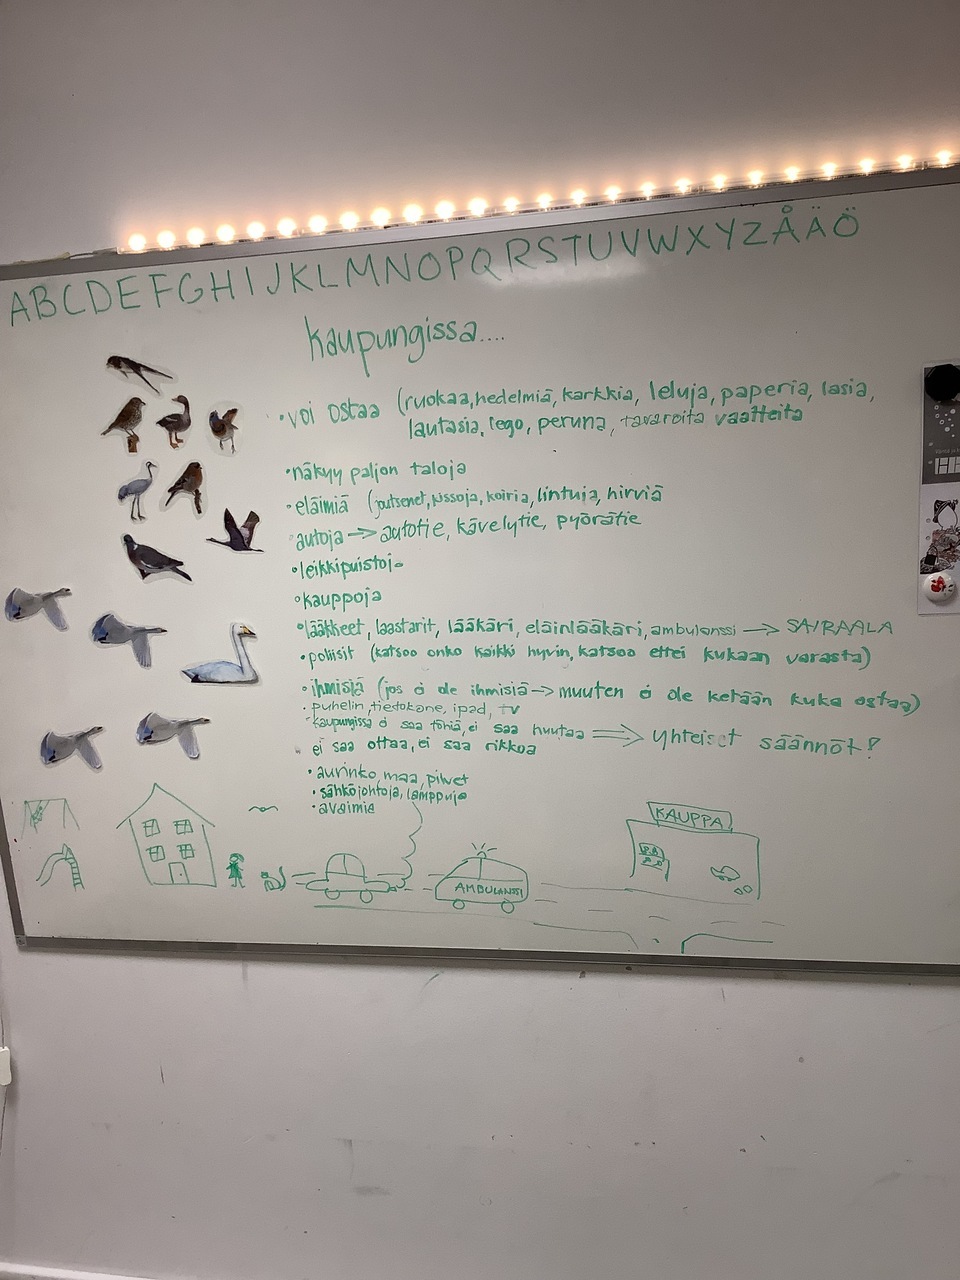 ABCDEFGHIJKLMNOPQRSTUVWXYZÅÄÖ
kaupungissa....
•voi ostaa (ruokaa, hedelmiä, karkkia, leluja, paperia, lasia,
lautasia, lego, peruna, tavaroita vaatteita
•näkyy paljon taloja
•eläimiä (joutsenet, kissoja, koiria, lintuja, hirviä
•autoja → autotie, kävelytie, pyörätie
•leikkipuistoja
•kauppoja
•lääkkeet, laastarit, lääkäri, eläinlääkäri, ambulanssi → SAIRAALA
•poliisit (katsoo onko kaikki hyvin, katsoo ettei kukaan varasta)
•ihmisiä (jos ei ole ihmisiä → muuten ei ole ketään kuka ostaa)
•puhelin, tietokone, ipad, tv
•kaupungissa ei saa töniä, ei saa huutaa ⇒ yhteiset säännöt!
ei saa ottaa, ei saa rikkoa
•aurinko, maa, pilvet
•sähköjohtoja, lamppuja
•avaimia
KAUPPA
AMBULANSSI